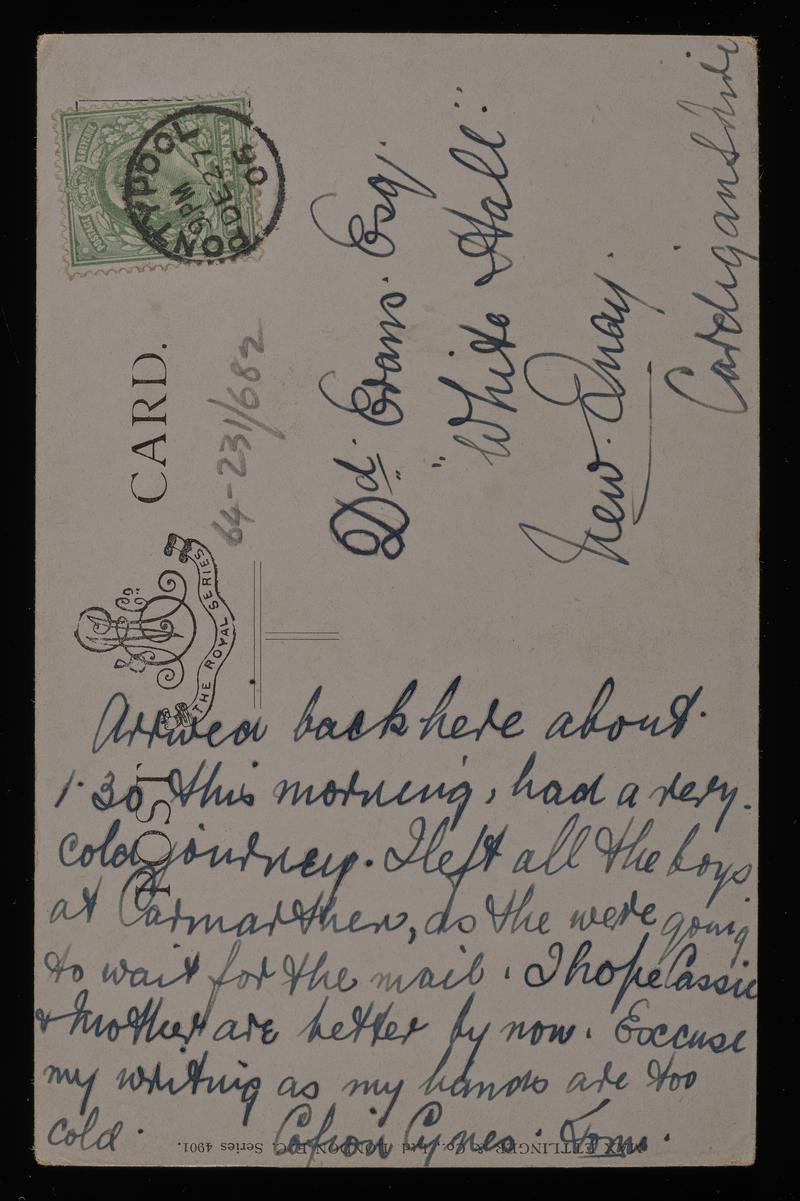 POST CARD.
THE ROYAL SERIES
PONTYPOOL
9 PM
DE 27
06
64-231/682
Dd. Evans. Esq.
"White Hall."
New. Quay.
Cardiganshire
Arrived back here about.
1.30 this morning, had a very.
cold journey. I left all the boys
at Carmarthen, as the were going
to wait for the mail. I hope Cassie
& Mother are better by now. Excuse
my writing as my hands are too
cold. Cofion Cynes. Tom.
MAX ETTLINGER & Co., Ltd LONDON E.C. Series 4901.